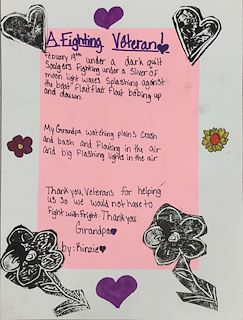 A Fighting Veteran!
Febuary 19th under a dark quilt
Soulgers Fighting under a Sliver of
moon light waves Splashing against
the boat float float float bobing up
and down.
My Grandpa watching plains Crash
and bash and Flouting in the air
and big Flashing lights in the air
Thank you, Veterans for helping
us So we would not have to
Fight with Fright. Thank you
Grandpa
by: Kinzie